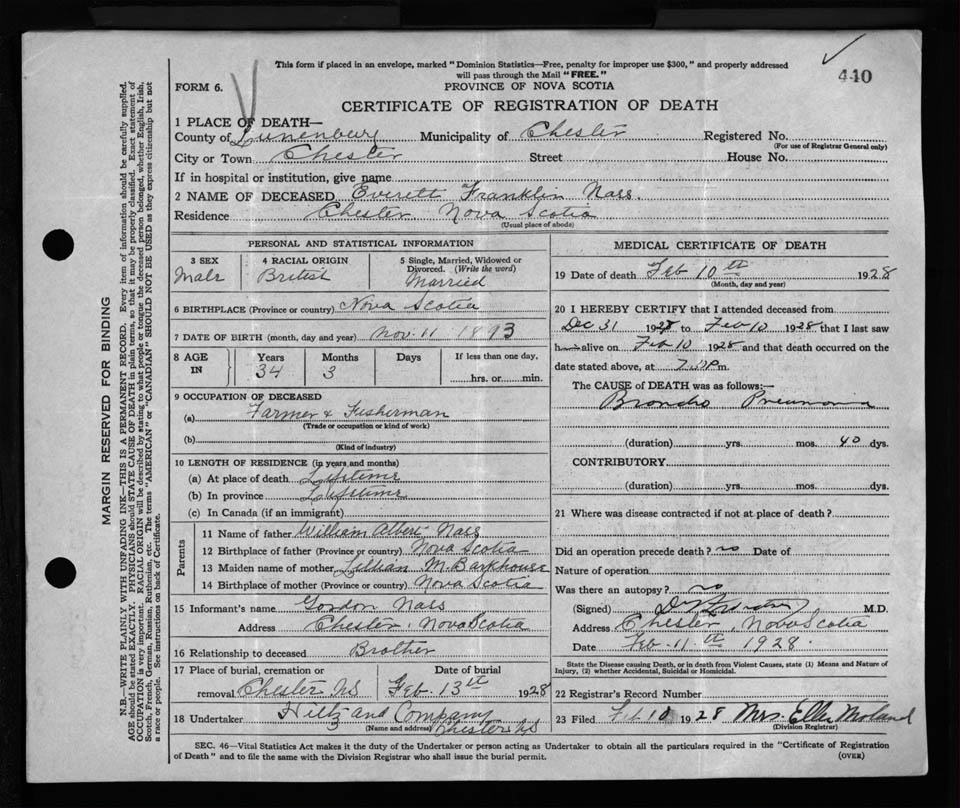 This form if placed in an envelope, marked "Dominion Statistics—Free, penalty for improper use $300," and properly addressed
will pass through the Mail "FREE."
440
FORM 6.
PROVINCE OF NOVA SCOTIA
CERTIFICATE OF REGISTRATION OF DEATH
1 PLACE OF DEATH—
County of Lunenburg Municipality of Chester Registered No.
(For use of Registrar General only)
City or Town Chester Street House No.
If in hospital or institution, give name
2 NAME OF DECEASED Everett Franklin Nass.
Residence Chester Nova Scotia
(Usual place of abode)
PERSONAL AND STATISTICAL INFORMATION
3 SEX
Male
4 RACIAL ORIGIN
British
5 Single, Married, Widowed or
Divorced. (Write the word)
Married
6 BIRTHPLACE (Province or country) Nova Scotia
7 DATE OF BIRTH (month, day and year) Nov. 11 1893
8 AGE IN
Years Months Days If less than one day,
34 3 hrs. or min.
9 OCCUPATION OF DECEASED
(a) Farmer & Fisherman
(Trade or occupation or kind of work)
(b)
(Kind of industry)
10 LENGTH OF RESIDENCE (in years and months)
(a) At place of death Lifetime
(b) In province Lifetime
(c) In Canada (if an immigrant)
Parents
11 Name of father William Albert Nass
12 Birthplace of father (Province or country) Nova Scotia
13 Maiden name of mother Lillian M. Barkhouse
14 Birthplace of mother (Province or country) Nova Scotia
15 Informant's name Gordon Nass
Address Chester, Nova Scotia
16 Relationship to deceased Brother
17 Place of burial, cremation or Date of burial
removal Chester NS Feb. 13th 1928
18 Undertaker Hiltz and Company
(Name and address) Chester NS
MEDICAL CERTIFICATE OF DEATH
19 Date of death Feb 10th 1928
(Month, day and year)
20 I HEREBY CERTIFY that I attended deceased from
Dec 31 1928 to Feb 10 1928 that I last saw
h alive on Feb 10 1928 and that death occurred on the
date stated above, at m.
The CAUSE of DEATH was as follows:—
Broncho Pneumonia
(duration) yrs. mos. 40 dys.
CONTRIBUTORY
(duration) yrs. mos. dys.
21 Where was disease contracted if not at place of death?
Did an operation precede death? no Date of
Nature of operation
Was there an autopsy? no
(Signed) M.D.
Address Chester, Nova Scotia
Date Feb. 11th 1928.
State the Disease causing Death, or in death from Violent Causes, state (1) Means and Nature of
Injury, (2) whether Accidental, Suicidal or Homicidal.
22 Registrar's Record Number
23 Filed Feb 10 1928 Mrs. Ella
(Division Registrar)
SEC. 46—Vital Statistics Act makes it the duty of the Undertaker or person acting as Undertaker to obtain all the particulars required in the "Certificate of Registration
of Death" and to file the same with the Division Registrar who shall issue the burial permit.
(OVER)
MARGIN RESERVED FOR BINDING
N.B.—WRITE PLAINLY WITH UNFADING INK—THIS IS A PERMANENT RECORD. Every item of information should be carefully supplied.
AGE should be stated EXACTLY. PHYSICIANS should STATE CAUSE OF DEATH in plain terms, so that it may be properly classified. Exact statement of
OCCUPATION is very important. RACIAL ORIGIN will be described by stating to what people or tongue the deceased person belonged, whether English, Irish,
Scotch, French, German, Russian, Ruthenian, etc. The terms "AMERICAN" or "CANADIAN" SHOULD NOT BE USED as they express citizenship but not
a race or people. See instructions on back of Certificate.